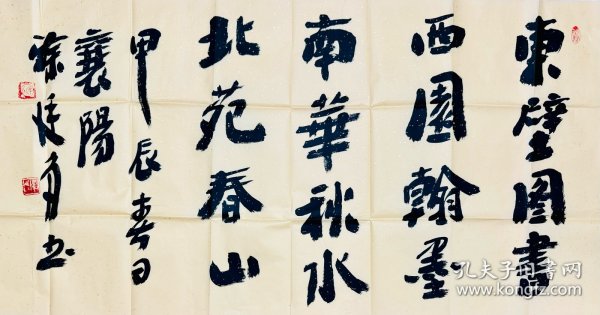 東壁图書
西園翰墨
南華秋水
北苑春山
甲辰春日
襄陽
孔夫子旧书网
www.kongfz.com